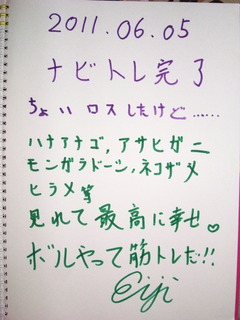 2011.06.05
ナビトレ完了
ちょいロスしたけど……
ハナアナゴ,アサヒガニ
モンガラドーン,ネコザメ
ヒラメ等
見れて最高に幸せ♡
ボルやって筋トレだ!!
Eiji